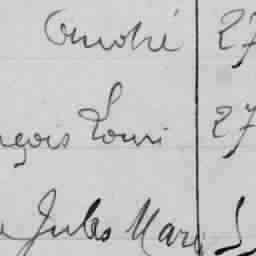 André 27
nçois Louis 27
Jules Mari